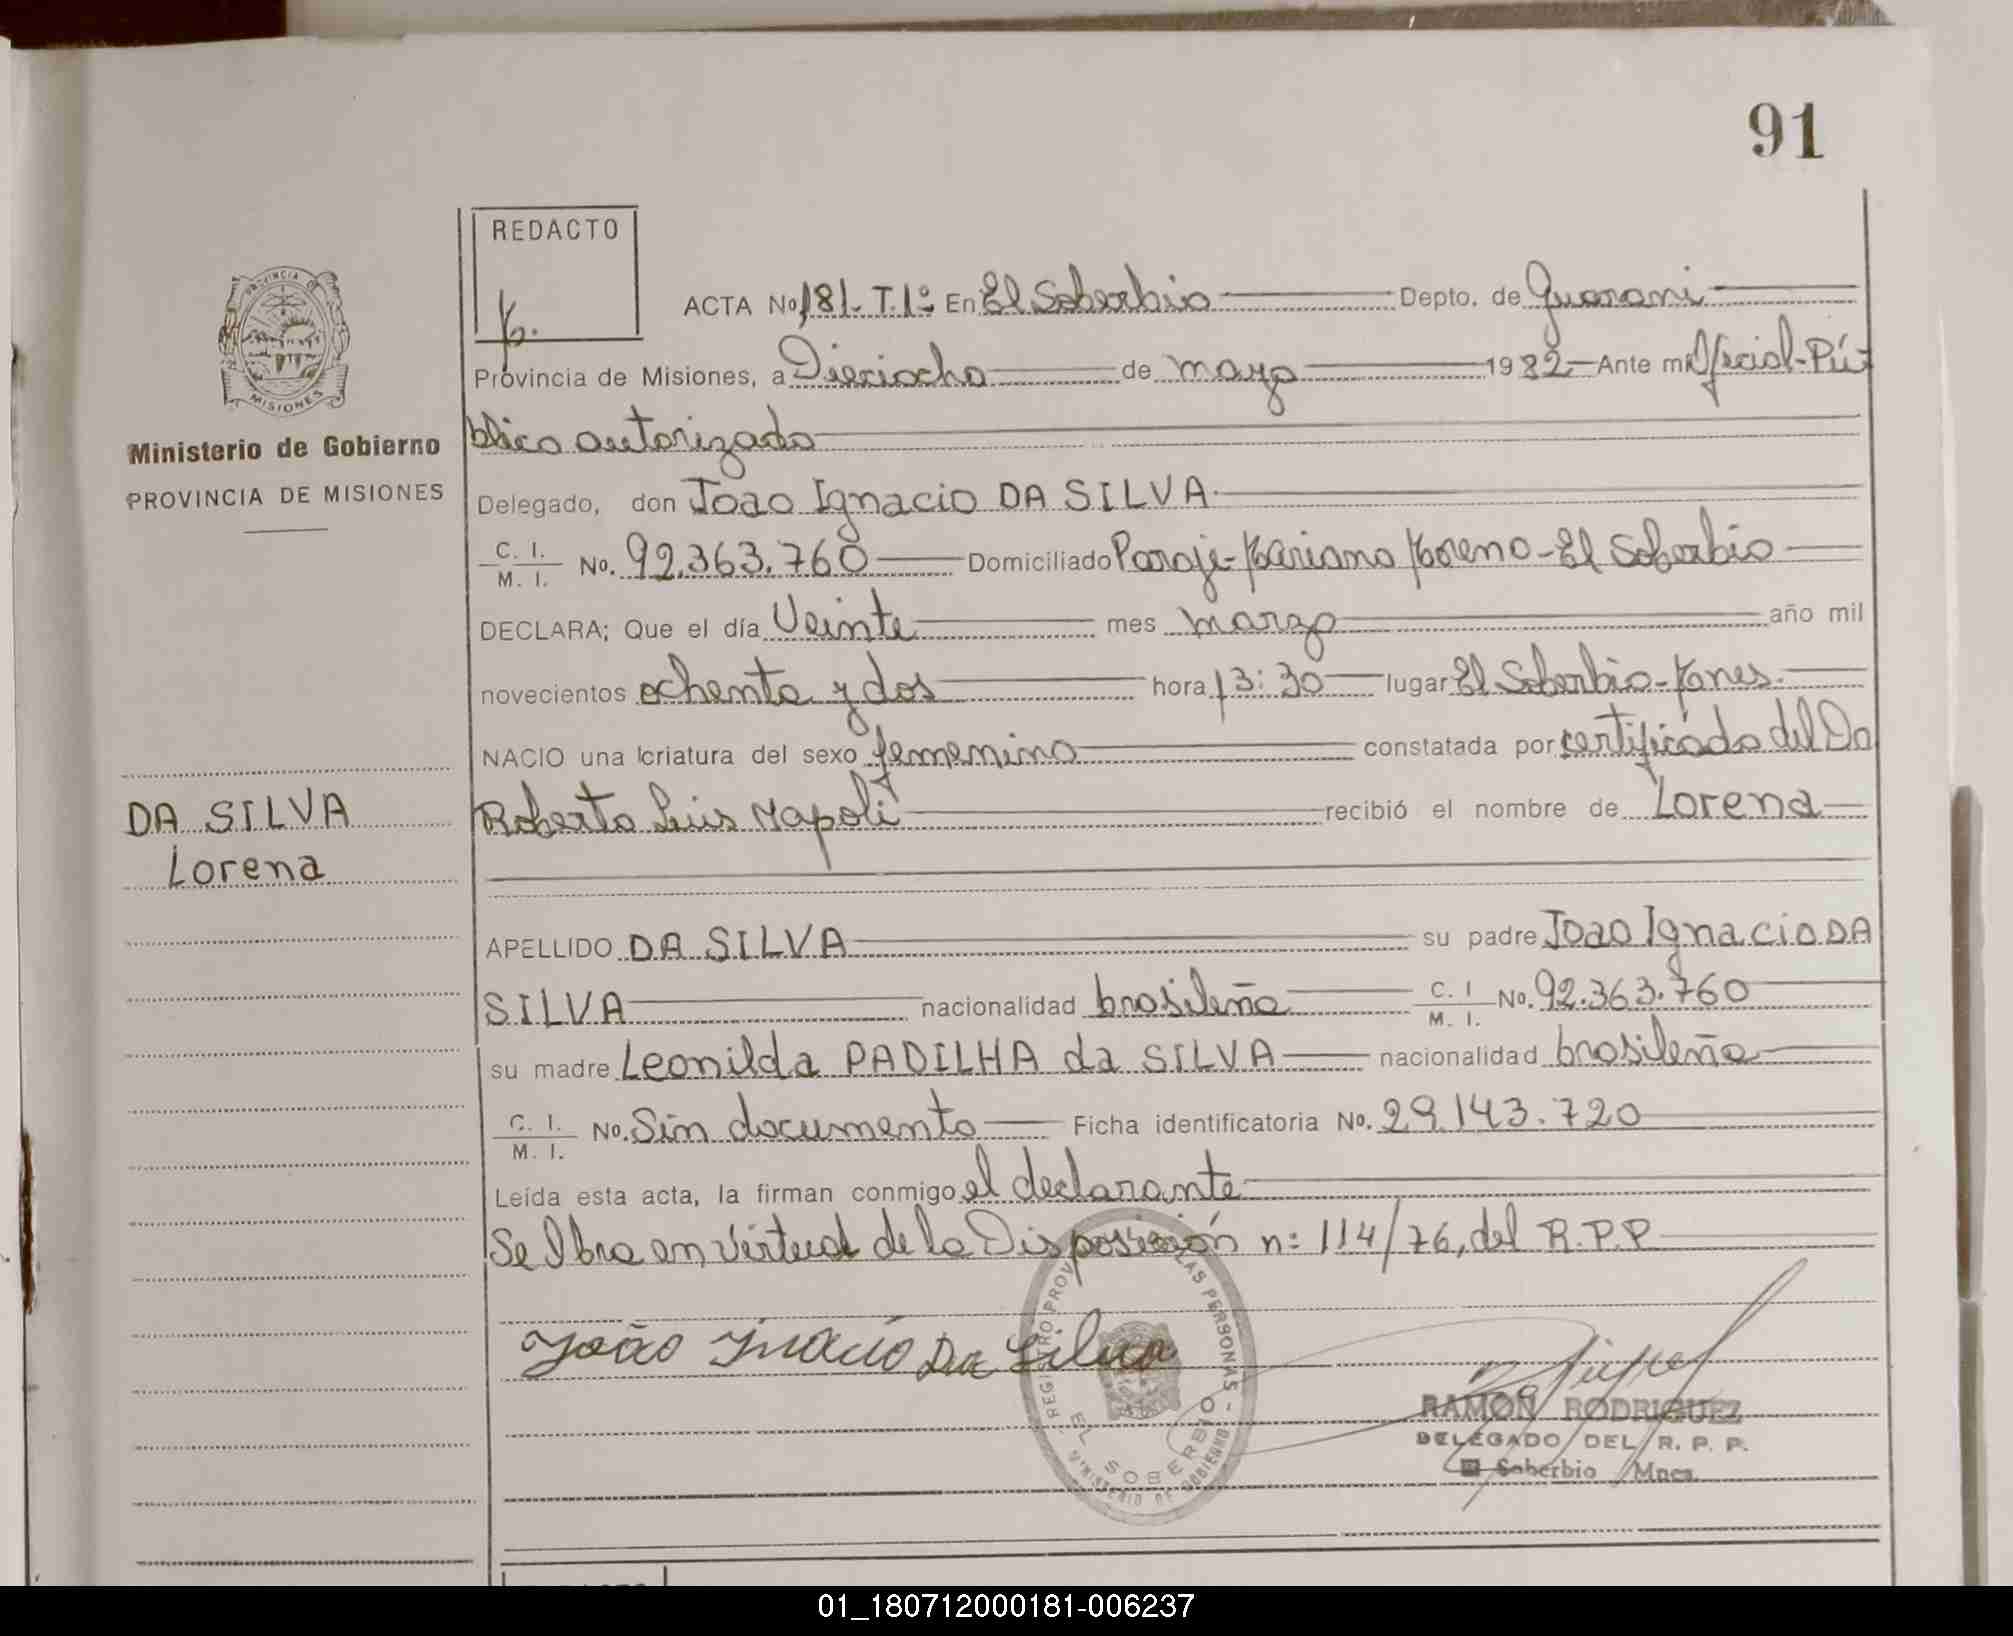 91
REDACTO
ACTA No 181- T.1º En El Soberbio Depto. de Guarani
Provincia de Misiones, a Dieciocho de marzo 1982 Ante mi Oficial-Pú-
blico autorizado
PROVINCIA DE MISIONES
Ministerio de Gobierno
PROVINCIA DE MISIONES
Delegado, don Joao Ignacio DA SILVA
C. I.
M. I. No. 92.363.760 Domiciliado Paraje-Mariano Moreno-El Soberbio
DECLARA; Que el día Veinte mes marzo año mil
novecientos ochenta y dos hora 13:30 lugar El Soberbio-Mnes.
NACIO una criatura del sexo femenino constatada por certificado del Do
Roberto Luis Napoli recibió el nombre de Lorena
DA SILVA
Lorena
APELLIDO DA SILVA su padre Joao Ignacio DA
SILVA nacionalidad brasileña C. I
M. I. No. 92.363.760
su madre Leonilda PADILHA da SILVA nacionalidad brasileña
C. I.
M. I. No. Sin documento Ficha identificatoria No. 29.143.720
Leída esta acta, la firman conmigo el declarante
Se Obra en virtud de la Disposición n: 114/76, del R.P.P
João Inacio Da Silva
REGISTRO PROV LAS PERSONAS -
EL SOBERBIO
MINISTERIO DE GOBIERNO
RAMON RODRIGUEZ
DELEGADO DEL R. P. P.
El Soberbio Mnes.
01_180712000181-006237